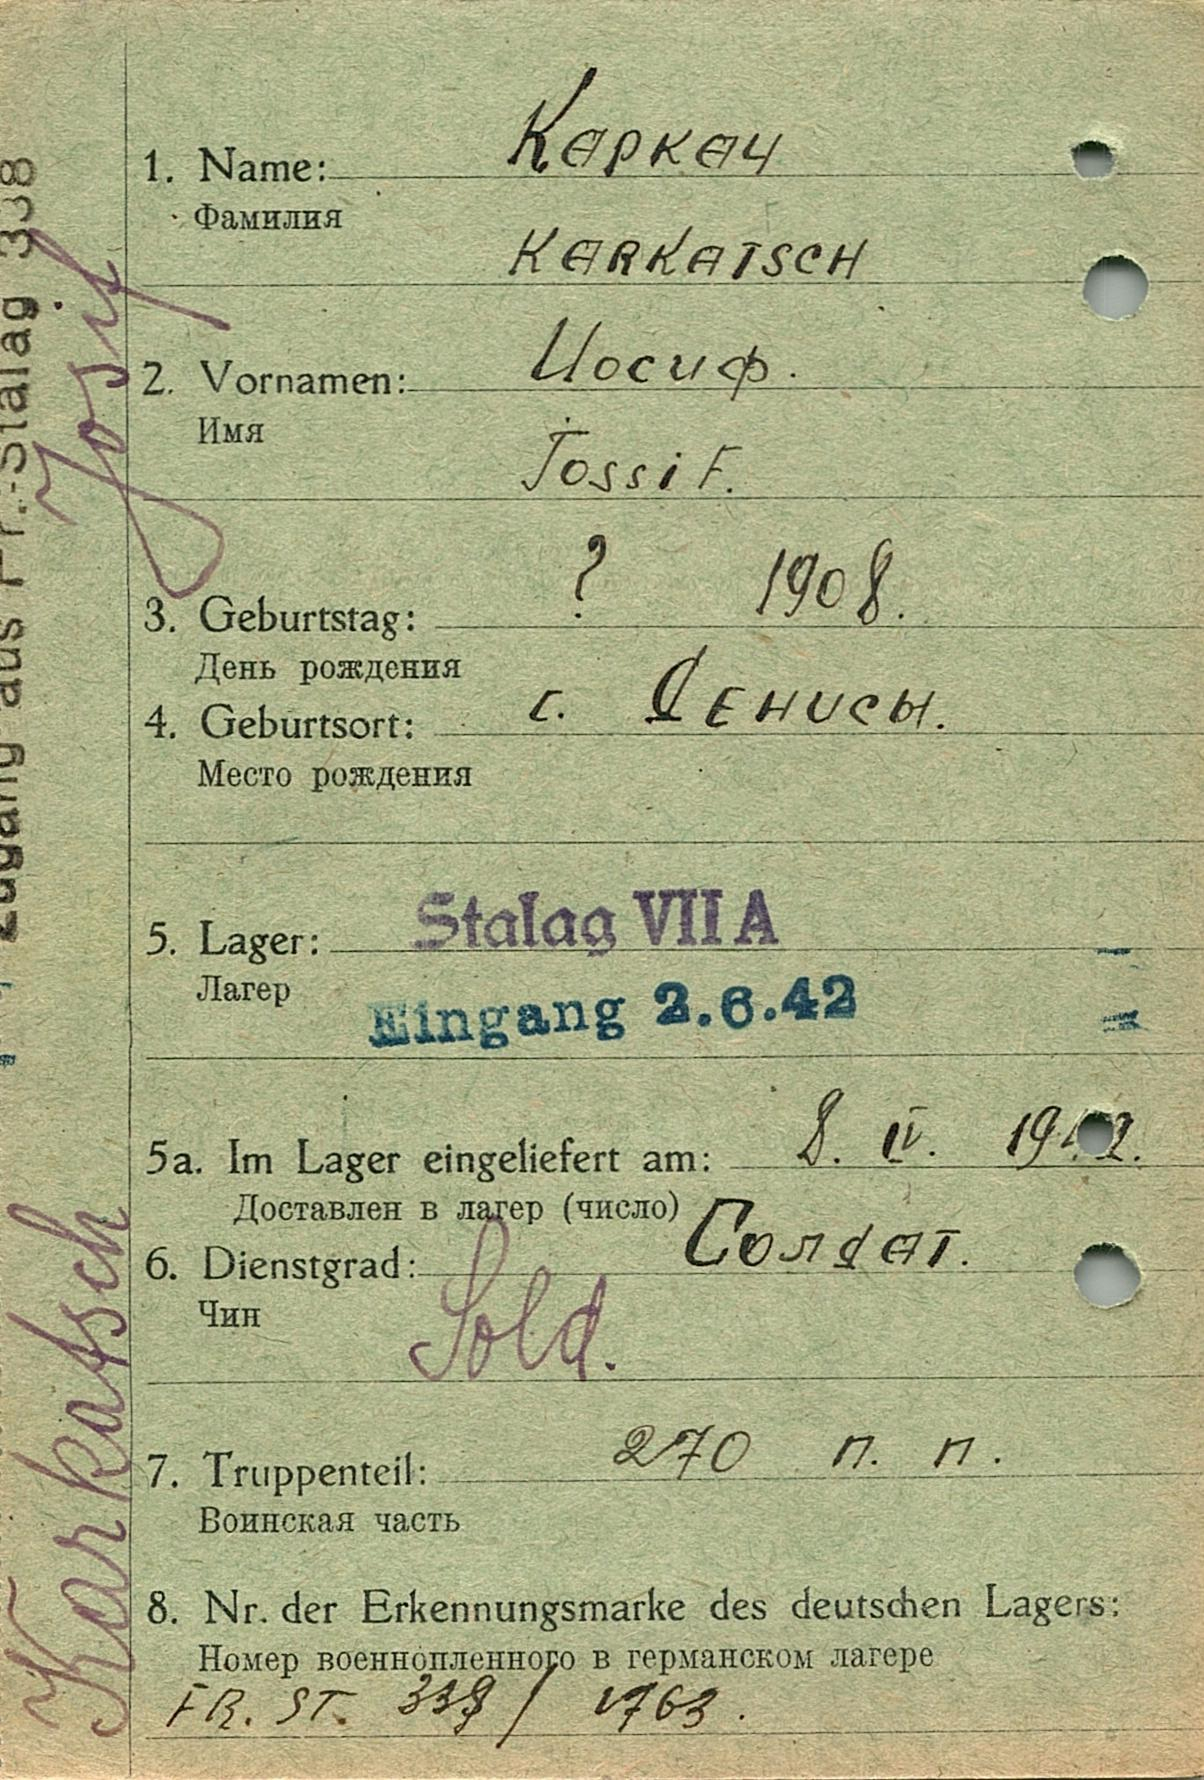 Каркач
1. Name:
Фамилия
KARKATSCH
Иосиф.
2. Vornamen:
Имя
Jossif.
? 1908.
3. Geburtstag:
День рождения
с. Денисы.
4. Geburtsort:
Место рождения
Stalag VII A
5. Lager:
Лагер
Eingang 2.6.42
8. IV. 1942.
5a. Im Lager eingeliefert am:
Доставлен в лагер (число)
Солдат.
6. Dienstgrad:
Чин
Sold.
270 п. п.
7. Truppenteil:
Воинская часть
8. Nr. der Erkennungsmarke des deutschen Lagers:
Номер военнопленного в германском лагере
FR. ST. 338/ 1763.
Karkatsch Josif
Zugang aus Fr.-Stalag 338